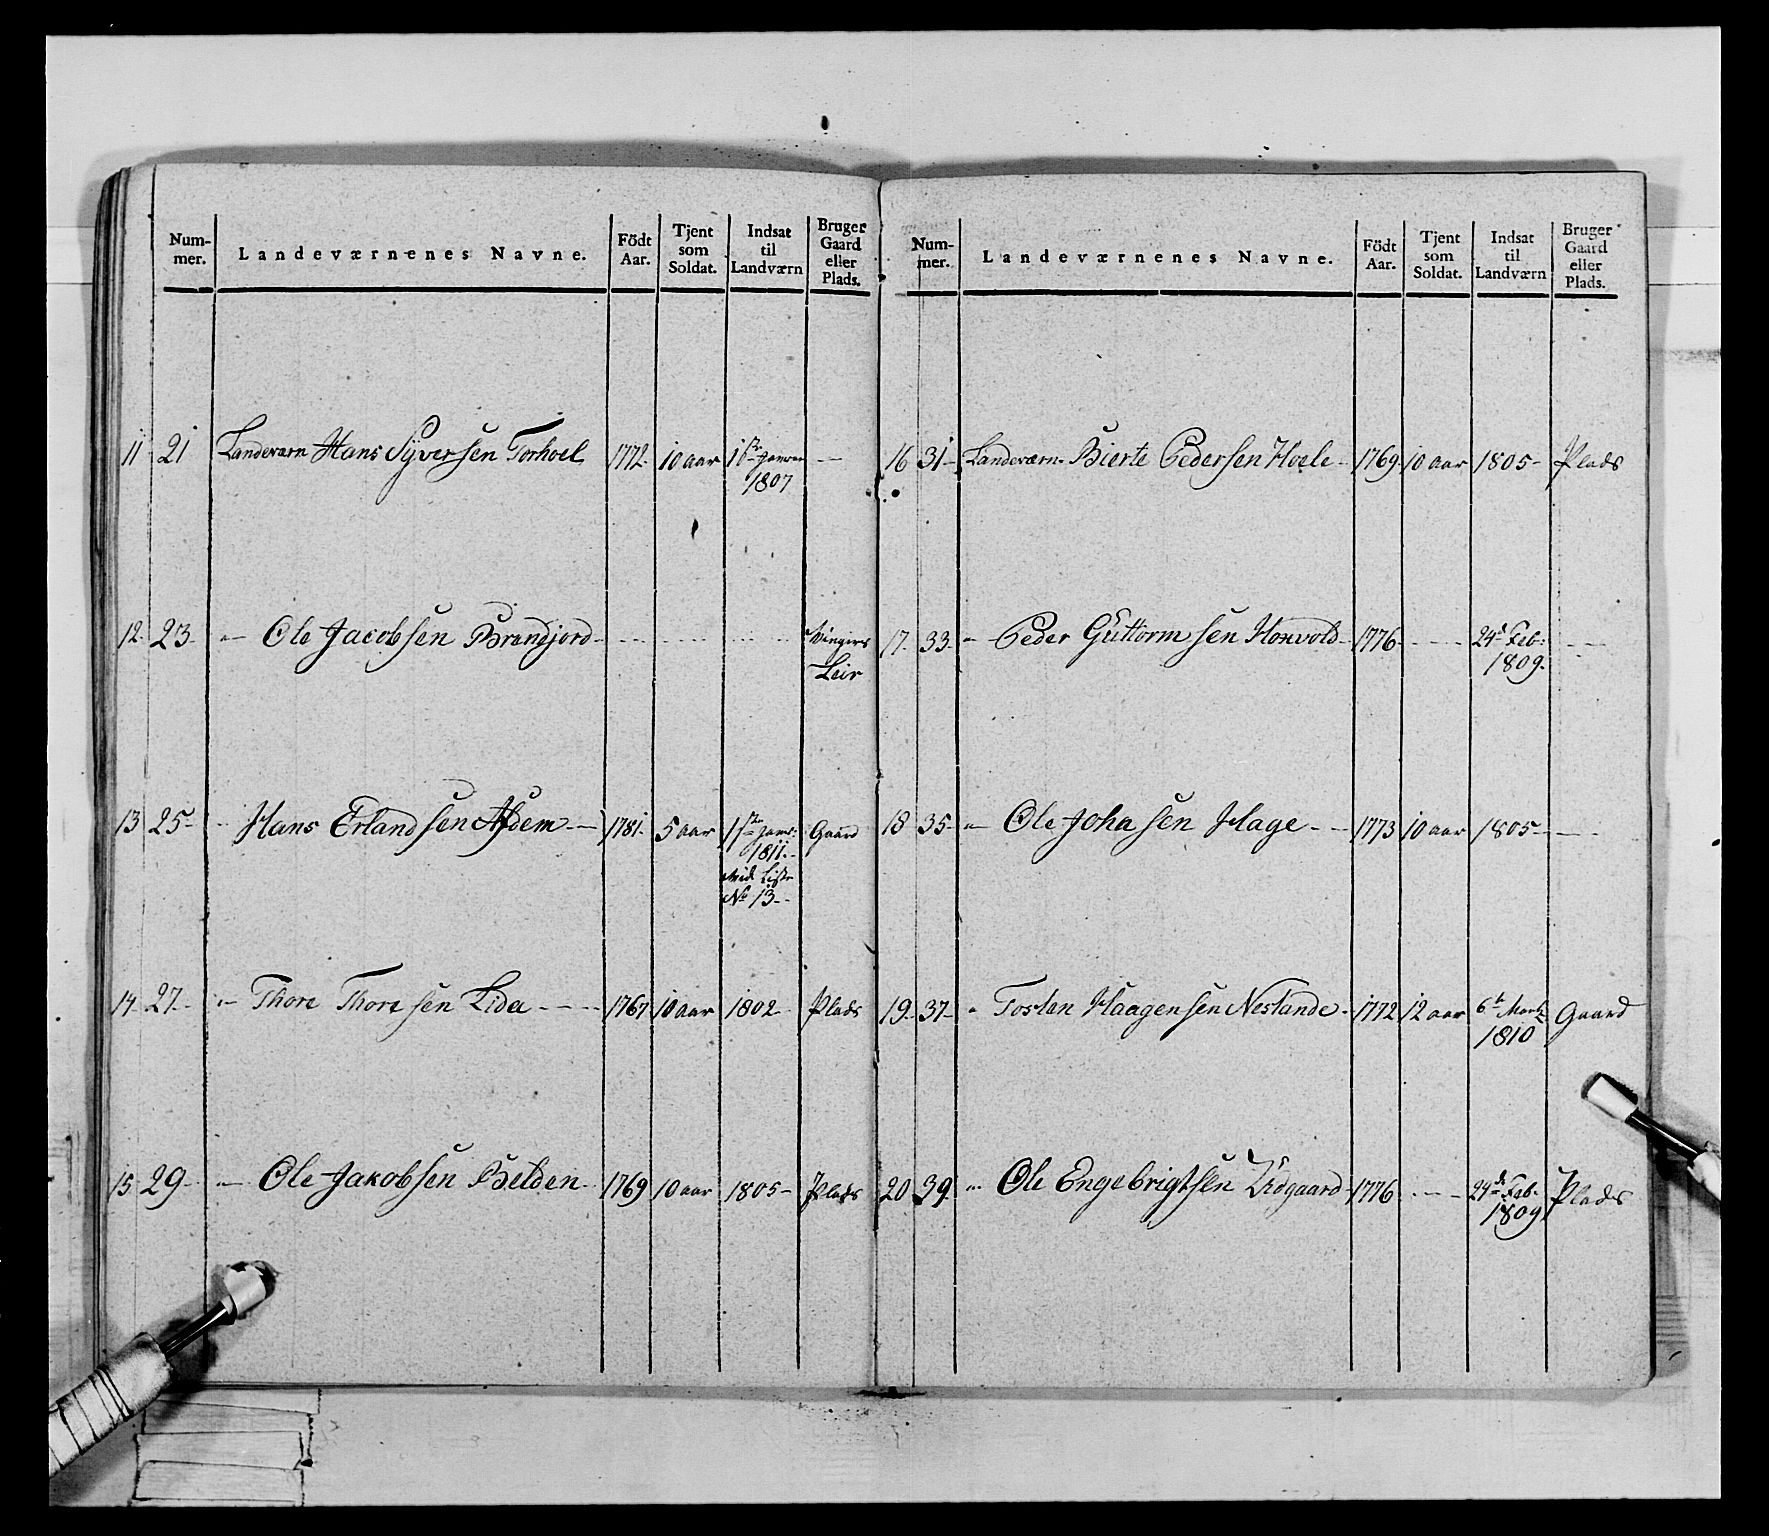 Num-
mer.
Landeværnenes Navne.
Födt
Aar.
Tjent
som
Soldat.
Indsat
til
Landværn
Bruger
Gaard
eller
Plads.
11 21 Landeværn Hans Syversen Torhoel 1772 10 aar 1ste Januar —
1807
12. 23. " Ole Jacobsen Brandjord - - - Vingers
Leir
13 25 " Hans Erlandsen 1781. 5 aar 1ste Janv: Gaard
1811.
vide Liste
No 13.
14. 27. " Thore Thoresen Lida 1767 10 aar 1802 Plads
15 29 " Ole Jakobsen Belden 1769 10 aar 1805 Plads
Num-
mer.
Landeværnenes Navne.
Födt
Aar.
Tjent
som
Soldat.
Indsat
til
Landværn
Bruger
Gaard
eller
Plads.
16 31 Landeværn Bierte Pedersen Hoele 1769 10 aar 1805 Plads
17. 33. " Peder Guttormsen Honvold 1776 - - - 24de Feb: - -
1809.
18 35 " Ole Johasen Hage 1773 10 aar 1805 —
19. 37 " Tosten Haagensen Neslande 1772 12 aar 6te Marti Gaard
1810
20 39. " Ole Engebrigtsen Udgaard 1776 - - - 24de Feb. Plads
1809